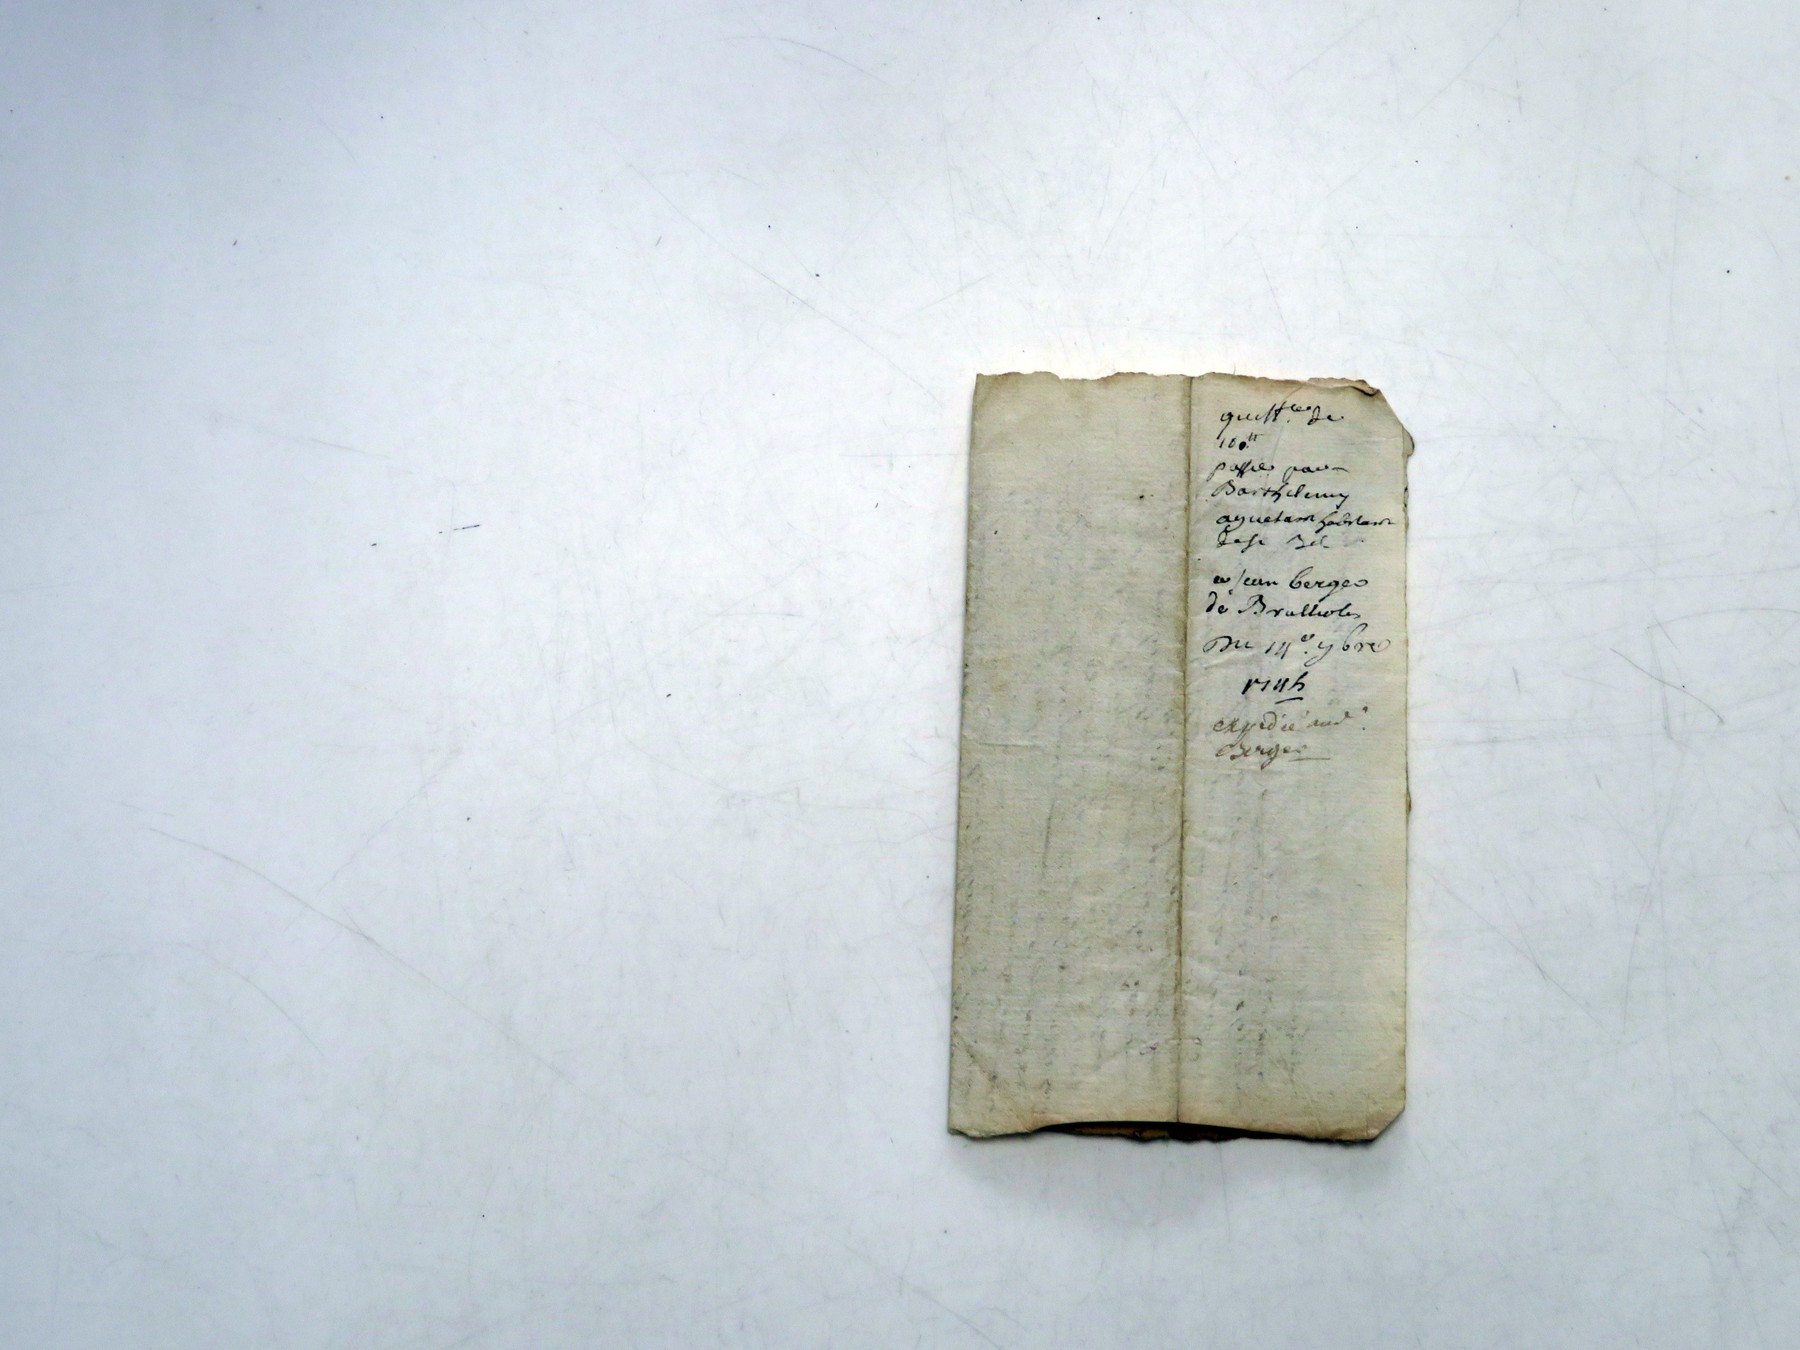 quitt.ce de
100tt
passée par
Barthelemy
aquetant habitant
a jean berger
de Brullioles
Du 14e. 9bre
expedié aud.
Berger